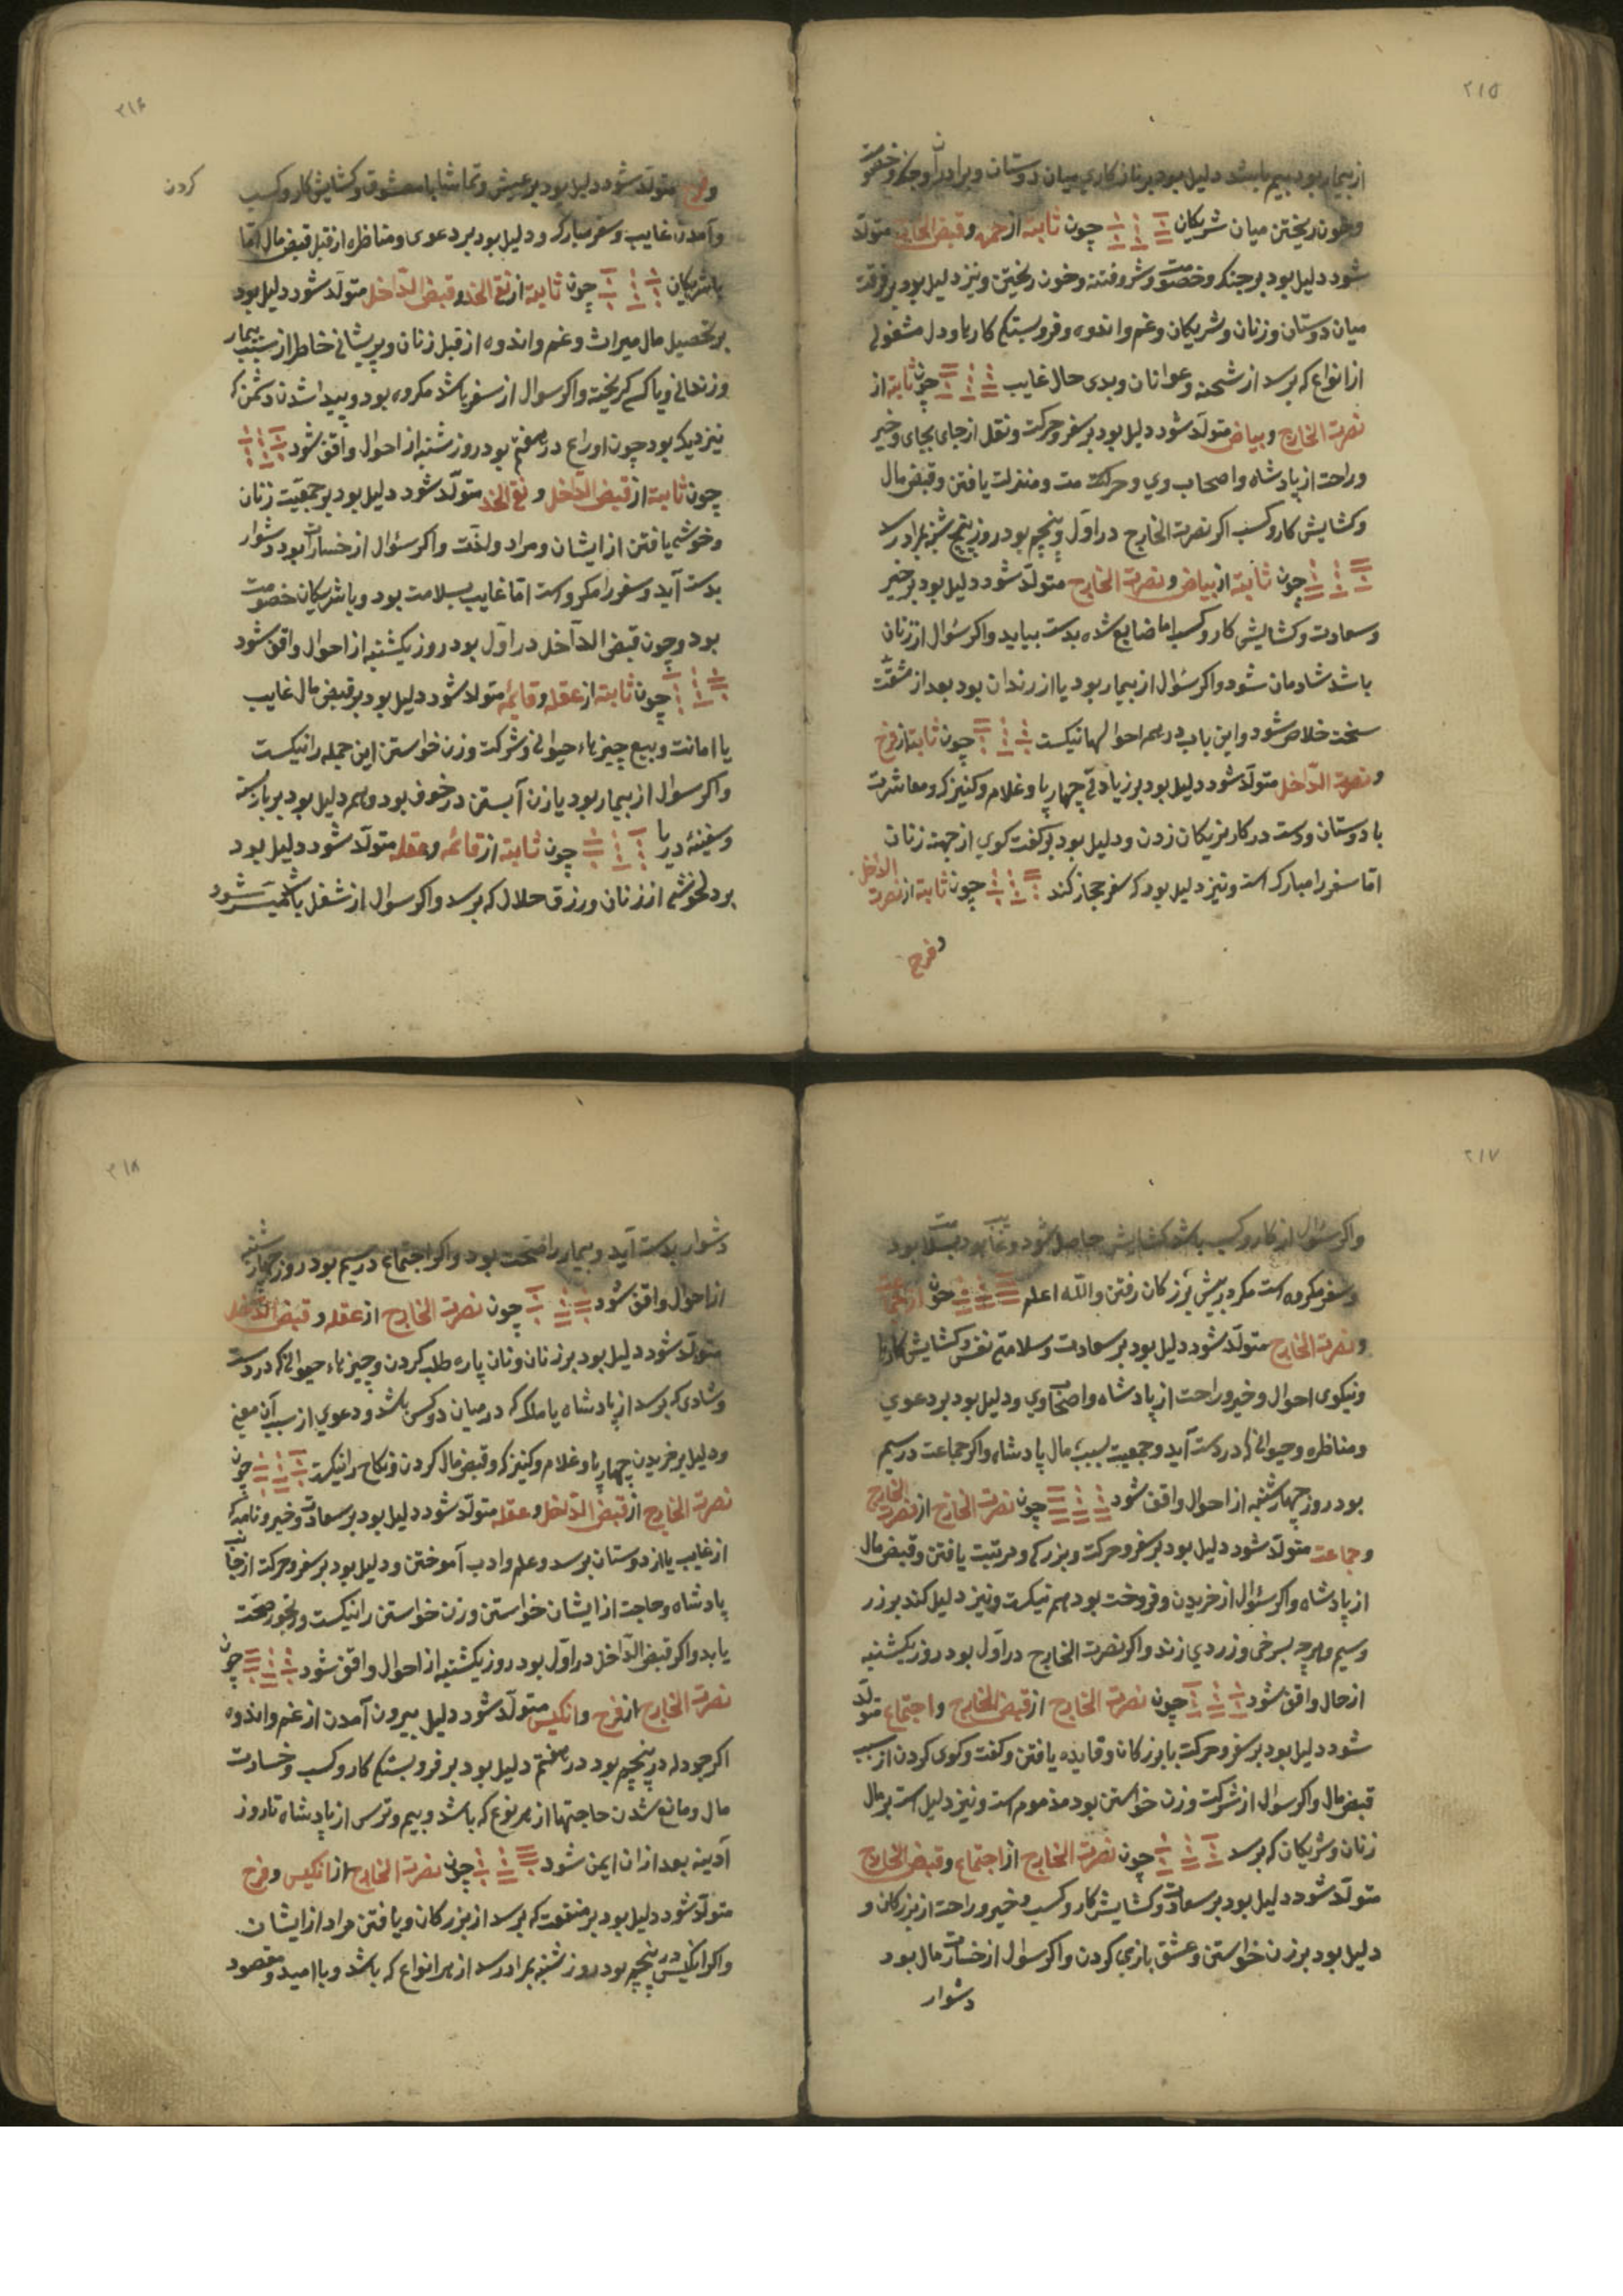 ۲۱۵
از بیمار بود بیم باشد دلیل بود بر نازکاری میان دوستان و برادران و جنک و خصومت
و خون ریختن میان شریکان چون ثابته از حمره و قبض الخارج متولّد
شود دلیل بود بر جنک و خصومت و شر و فتنه و خون ریختن و نیز دلیل بود بر فرقت
میان دوستان و زنان و شریکان و غم و اندوه و فروبستکی کارها و دل مشغولی
از انواع که برسد از شحنه و عوانان و بدی حال غایب چون ثابته از
نصرت الخارج و بیاض متولّد شود دلیل بود بر سفر و حرکت و نقل از جای بجای و خیر
و راحت از پادشاه و اصحاب وی و حرکت و منزلت یافتن و قبض مال
و کشایش کار و کسب اکر نصرت الخارج در اوّل و پنجم بود روز پنج شنبه بمراد رسد
چون ثابته از بیاض و نصرت الخارج متولّد شود دلیل بود بر خیر
و سعادت و کشایش کار و کسب اما ضایع شده بدست بیاید و اکر سئوال از زنان
باشد شادمان شود و اکر سئوال از بیمار بود یا از زندان بود بعد از مشقّت
سخت خلاص شود و این باب در همه احوالها نیکست چون ثابته از فرح
و نصرت الدّاخل متولّد شود دلیل بود بر زیادتی چهارپا و غلام و کنیزک و معاشرت
با دوستان و دست در کار نزیکان زدن و دلیل بود بر کفت کوی از جهة زنان
امّا سفر را مبارک است و نیز دلیل بود که سفر حجاز کند چون ثابته از نصرت الداخل
و فرح
۲۱۶
و فرح متولّد شود دلیل بود بر عیش و تماشا با معشوق و کشایش کار و کسب کردن
و آمدن غایب و سفر مبارک و دلیل بود بر دعوی و مناظره از قبل قبض مال امّا
با شریکان چون ثابته از نقی الخد و قبض الدّاخل متولّد شود دلیل بود
بر تحصیل مال میراث و غم و اندوه از قبل زنان و پریشانی خاطر از سبب بیمار
و زندانی و یا کسی کریخته و اکر سوال از سفر باشد مکروه بود و پیدا شدن دشمن که
نزدیک بود چون او را ع در هفتم بود روز شنبه از احوال واقف شود
چون ثابته از قبض الدّاخل و نقی الخد متولّد شود دلیل بود بر جمعیّت زنان
و خوشی یافتن از ایشان و مراد و لذّت و اکر سئوال از خسارات بود دشوار
بدست آید و سفر را مکروه است امّا غایب بسلامت بود و با شریکان خصومت
بود و چون قبض الدّاخل در اوّل بود روز یکشنبه از احوال واقف شود
چون ثابته از عقله و قایمه متولد شود دلیل بود بر قبض مال غایب
یا امانت و بیع چیزهاء حیوانی و شرکت و زن خواستن این جمله را نیکست
و اکر سوال از بیمار بود یا زن آبستن در خوف بود و هم دلیل بود بر بار بسته
و سفینهٔ دریا چون ثابته از قائمه و عقله متولّد شود دلیل بود
بر دلخوشی از زنان و رزق حلال که برسد و اکر سوال از شغل باشد میسّر شود
۲۱۷
و اکر سئوال از کار و کسب باشد کشایش حاصل شود و غایب بسلامت بود
و سفر مکروه است مکر در پیش بزرکان رفتن و اللّه اعلم چون از جماعت
و نصرت الخارج متولّد شود دلیل بود بر سعادت و سلامتی نفس و کشایش کارها
و نیکوی احوال و خیر و راحت از پادشاه و اصحاب وی و دلیل بود بر دعوی
و مناظره و حیوانی که در دست آید و جمعیت بسبب مال پادشاه و اکر جماعت در سیم
بود روز چهارشنبه از احوال واقف شود چون نصرت الخارج از نصرت الخارج
و جماعت متولّد شود دلیل بود بر سفر و حرکت و بزرکی و مرتبت یافتن و قبض مال
از پادشاه و اکر سئوال از خریدن و فروخت بود هم نیکست و نیز دلیل کند بر زر
و سیم و هرچه بسرخی و زردی زند و اکر نصرت الخارج در اوّل بود روز یکشنبه
از حال واقف شود چون نصرت الخارج از قبض الخارج و اجتماع متولّد
شود دلیل بود بر سفر و حرکت با بزرکان و فایده یافتن و کفت و کوی کردن از سبب
قبض مال و اکر سوال از شرکت و زن خواستن بود مذموم است و نیز دلیل است بر مال
زنان و شریکان که برسد چون نصرت الخارج از اجتماع و قبض الخارج
متولّد شود دلیل بود بر سعادت و کشایش کار و کسب و خیر و راحت از بزرکان و
دلیل بود بر زن خواستن و عشق بازی کردن و اکر سوال از خسارت مال بود
دشوار
۲۱۸
دشوار بدست آید و بیمار را صحت بود و اکر اجتماع در سیم بود روز چهارشنبه
از احوال واقف شود چون نصرت الخارج از عقله و قبض الدّاخل
متولّد شود دلیل بود بر زنان و نان پاره طلب کردن و چیزهاء حیوانی که در دست
و شادی که برسد از پادشاه یا ملکی که در میان دو کس باشد و دعوی از سبب آن معنی
و دلیل بر خریدن چهارپا و غلام و کنیزک و قبض مال کردن و نکاح را نیکست چون
نصرت الخارج از قبض الدّاخل و عقله متولّد شود دلیل بود بر سعادت و خیر و نامه که
از غایب یا از دوستان برسد و علم و ادب آموختن و دلیل بود بر سفر و حرکت از جانب
پادشاه و حاجت از ایشان خواستن و زن خواستن را نیکست و رنجور صحّت
یابد و اکر قبض الدّاخل در اوّل بود روز یکشنبه از احوال واقف شود چون
نصرت الخارج از فرح و انکیس متولّد شود دلیل بیرون آمدن از غم و اندوه
اکر جودله در پنجم بود در هفتم دلیل بود بر فروبستکی کار و کسب و خسارت
مال و مانع شدن حاجتها از هر نوع که باشد و بیم و ترس از پادشاه تا روز
آدینه بعد از ان ایمن شود چون نصرت الخارج از انکیس و فرح
متولّد شود دلیل بود بر منفعت که برسد از بزرکان و یافتن مراد از ایشان
و اکر انکیس در پنجم بود روز شنبه بمراد رسد از هر انواع که باشد و با امید و مقصود